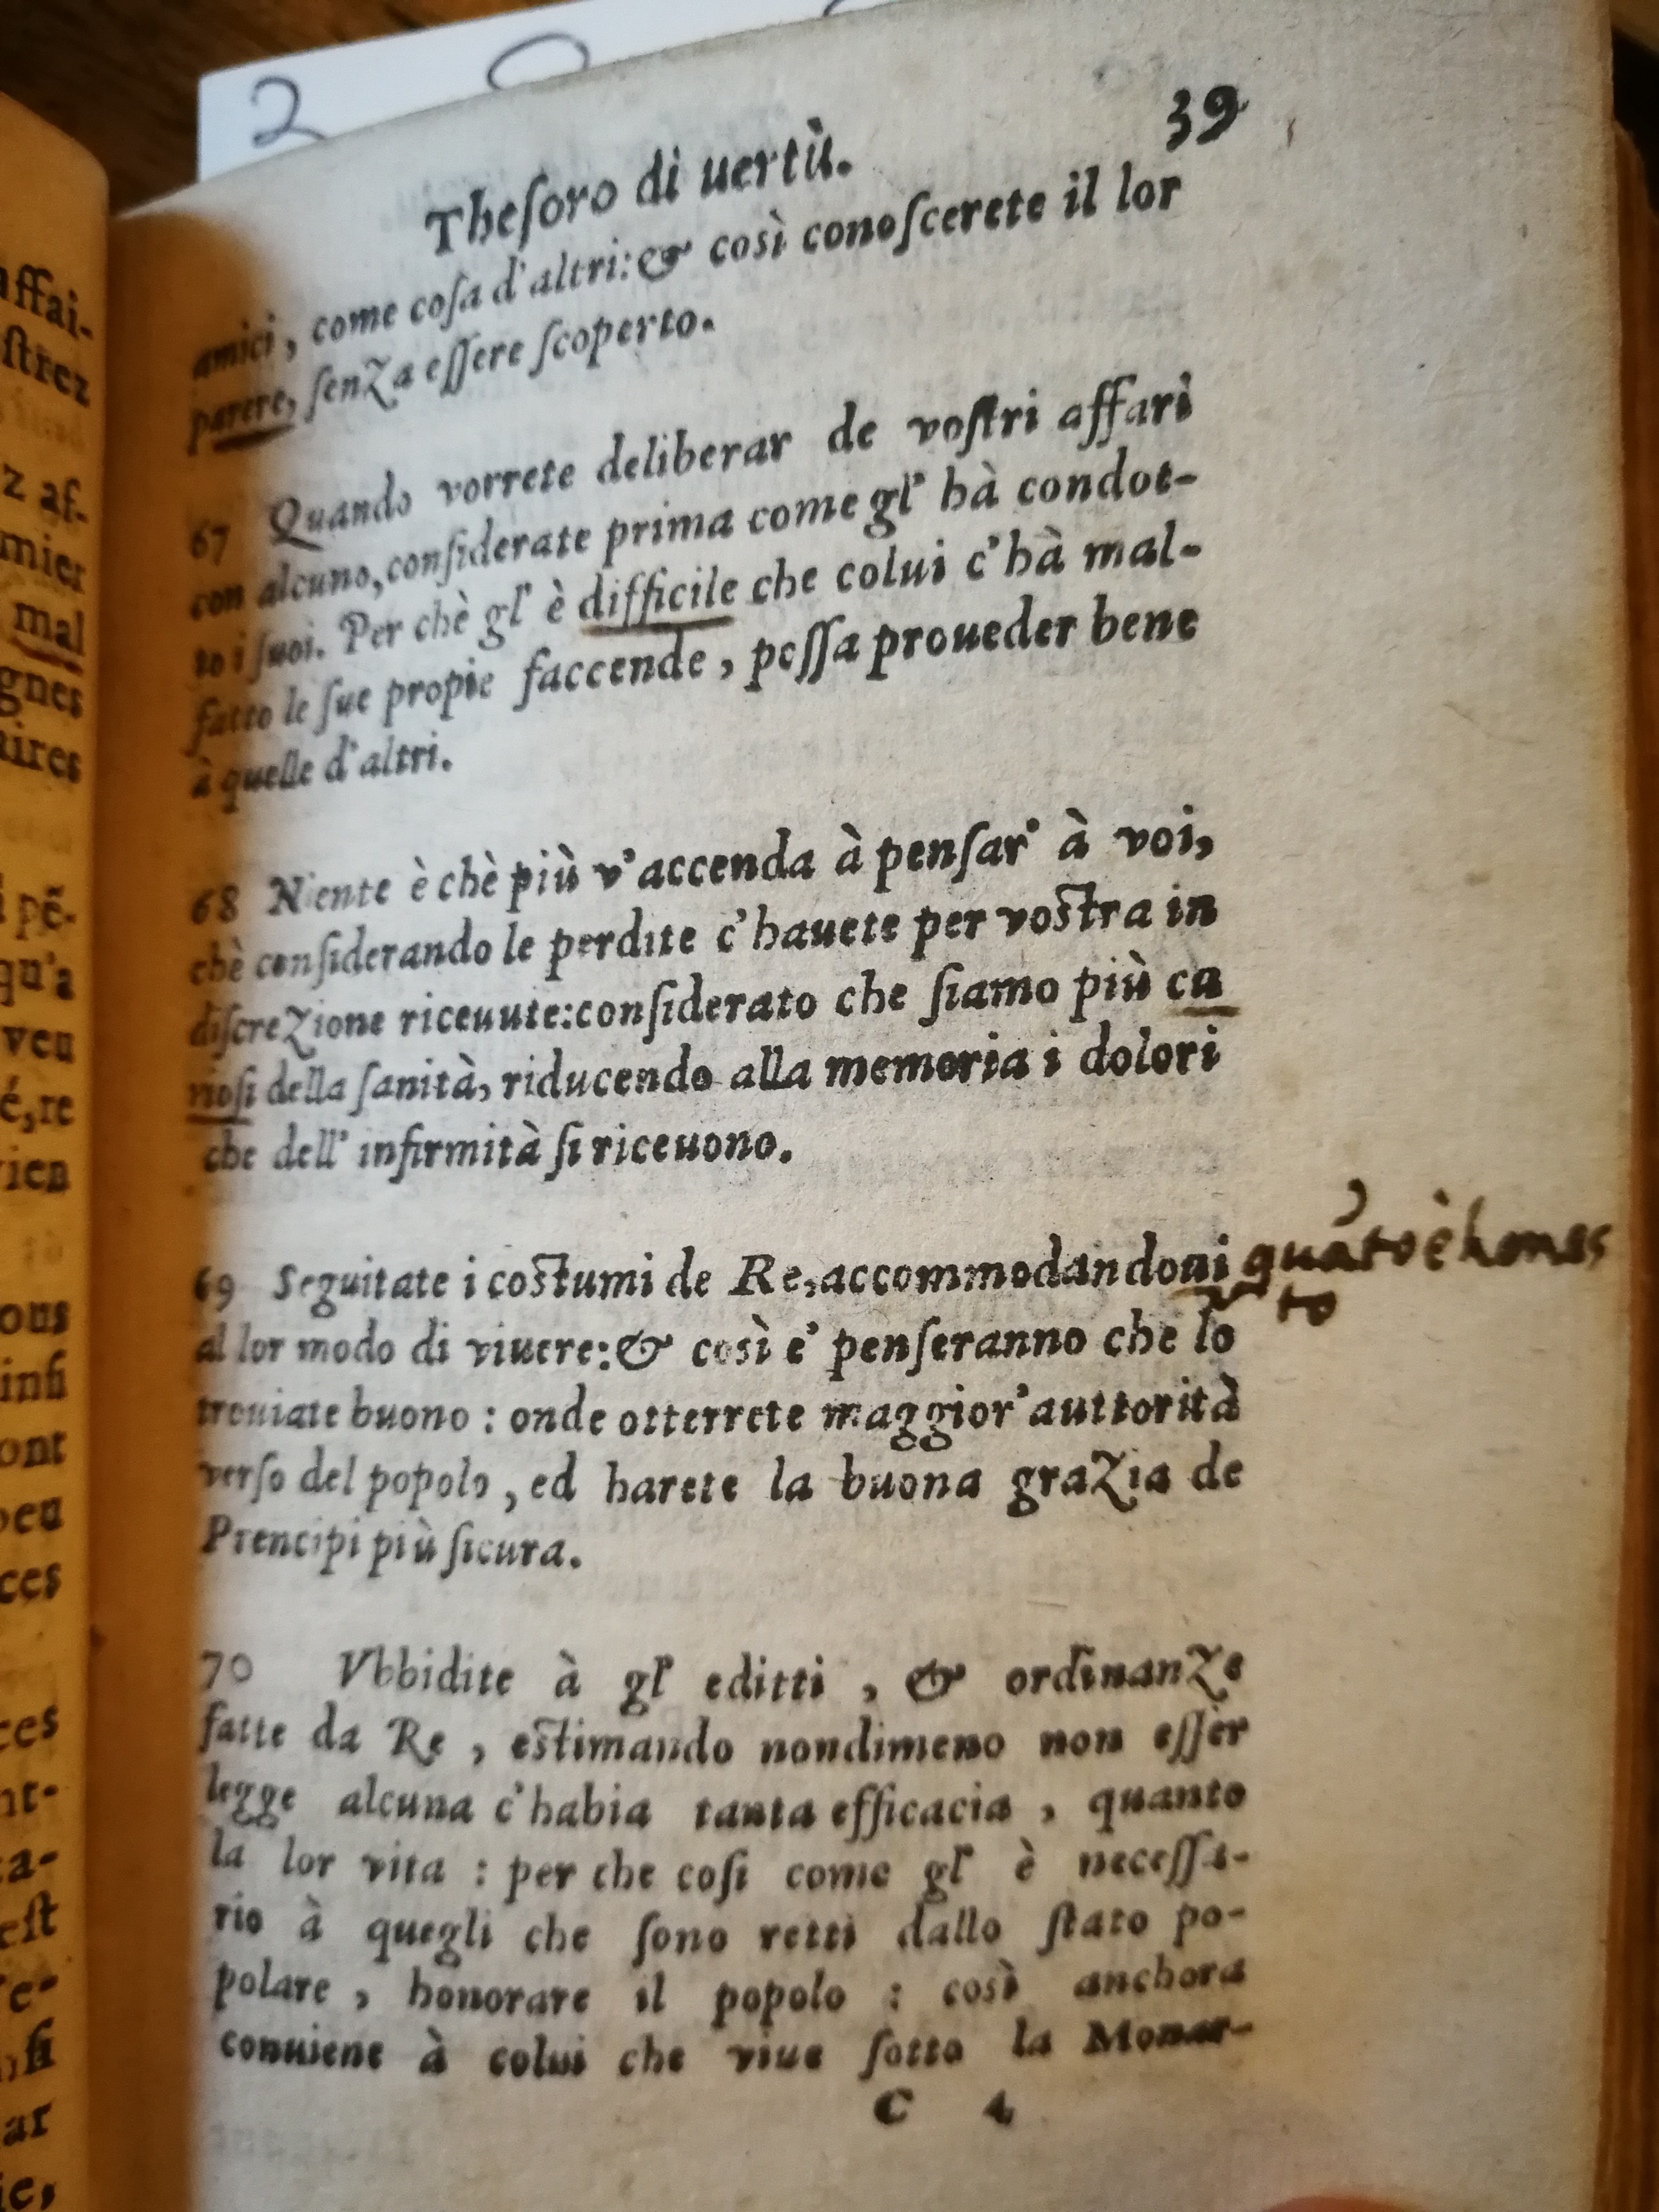 2
39
Theſoro di uertù.
amici, come coſa d'altri:& così conoſcerete il lor
parere, ſenza eſſere ſcoperto.
67 Quando vorrete deliberar de voſtri affari
con alcuno, conſiderate prima come gl' hà condot-
to i ſuoi. Per chè gl' è difficile che colui c'hà mal-
fatto le ſue propie faccende, poſſa proueder bene
à quelle d'altri.
68 Niente è chè più v'accenda à penſar' à voi,
chè conſiderando le perdite c'hauete per voſtra in
diſcrezione riceuute:conſiderato che ſiamo più cu
rioſi della ſanità, riducendo alla memoria i dolori
che dell' infirmità ſi riceuono.
69 Seguitate i coſtumi de Re, accommodandoui quãto è hones
to
al lor modo di viuere:& così e' penſeranno che lo
trouiate buono : onde otterrete maggior' auttorità
verſo del popolo, ed harete la buona grazia de
Prencipi più ſicura.
70 Vbbidite à gl' editti, & ordinanze
fatte da Re, eſtimando nondimeno non eſſer
legge alcuna c'habia tanta efficacia, quanto
la lor vita : per che coſi come gl' è neceſſa-
rio à quegli che ſono retti dallo ſtato po-
polare, honorare il popolo : così anchora
conuiene à colui che viue ſotto la Monar-
C 4
affai-
ſtrez
z af-
mier
mal
gnes
aires
i pẽ-
qu'a
veu
é, re
rien
ous
infi
ont
peu
ces
ces
nt-
ca-
eſt
re-
ar
ie,